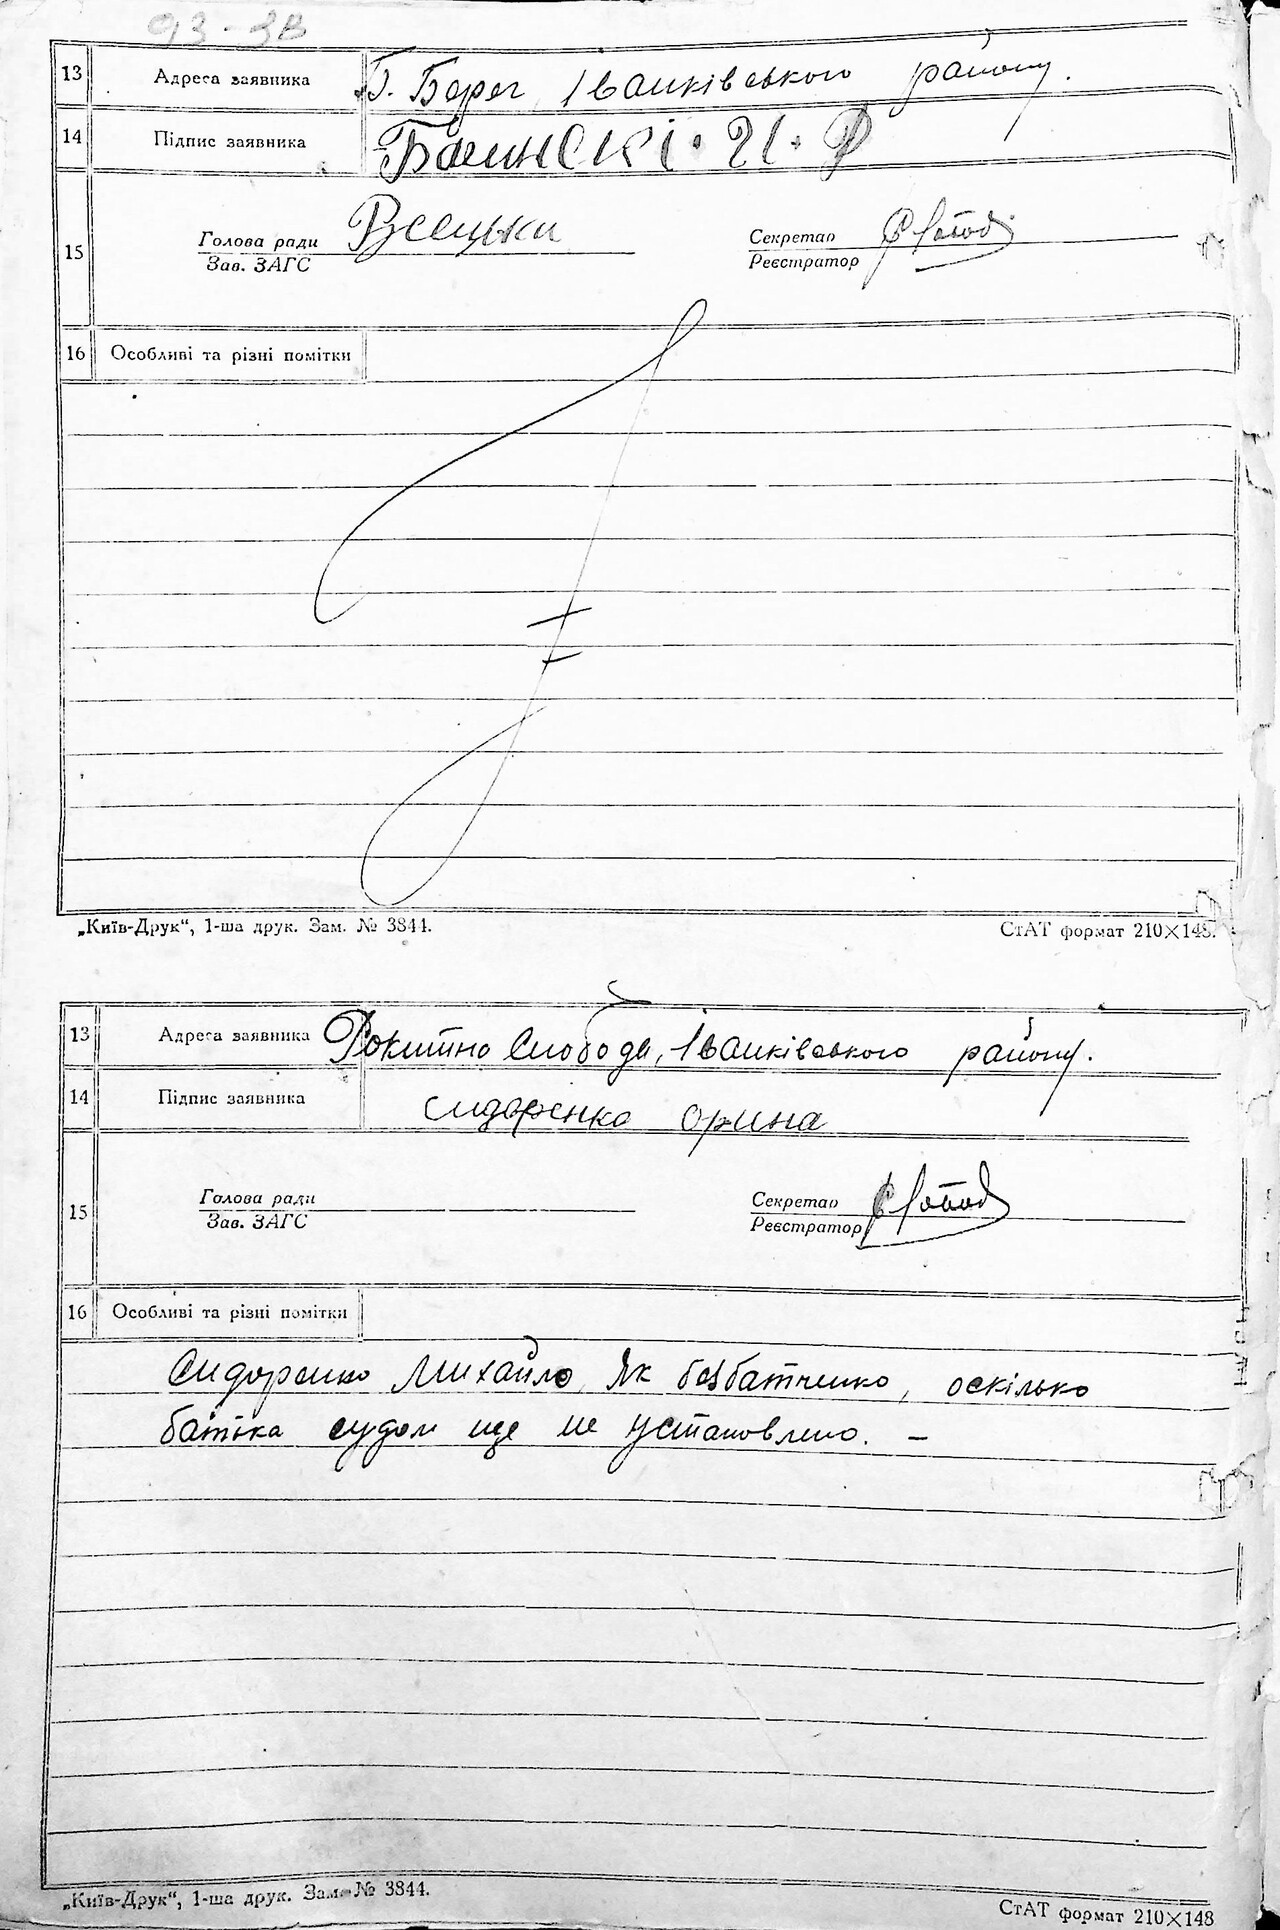 93-зв
13 Адреса заявника Б. Берег Іванківського району.
14 Підпис заявника
15 Голова ради
Зав. ЗАГС
Секретар
Реєстратор
16 Особливі та різні помітки
„Київ-Друк“, 1-ша друк. Зам. № 3844. СтАТ формат 210×148.
13 Адреса заявника Рокитно Слобода, Іванківського району.
14 Підпис заявника сидоренко орина
15 Голова ради
Зав. ЗАГС
Секретар
Реєстратор
16 Особливі та різні помітки
Сидоренко Михайло, як безбатченко, оскілько
батька судом ще не установлено. –
„Київ-Друк“, 1-ша друк. Зам. № 3844. СтАТ формат 210×148